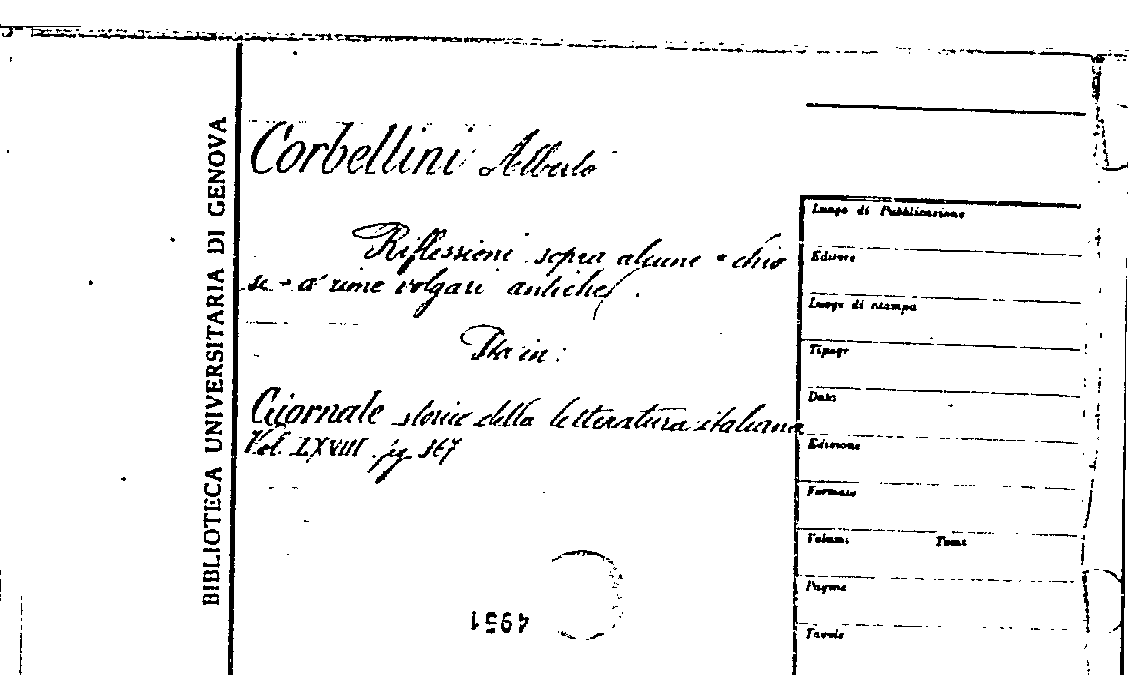 BIBLIOTECA UNIVERSITARIA DI GENOVA
Corbellini Alberto
Riflessioni sopra alcune "chio
se" a rime volgari antiche.
Sta in:
Giornale storico della letteratura italiana
Vol. LXVIII. pg. 367
4951
Luogo di Pubblicazione
Editore
Luogo di stampa
Tipogr
Data
Edizione
Formato
Volumi Tomi
Pagine
Tavole